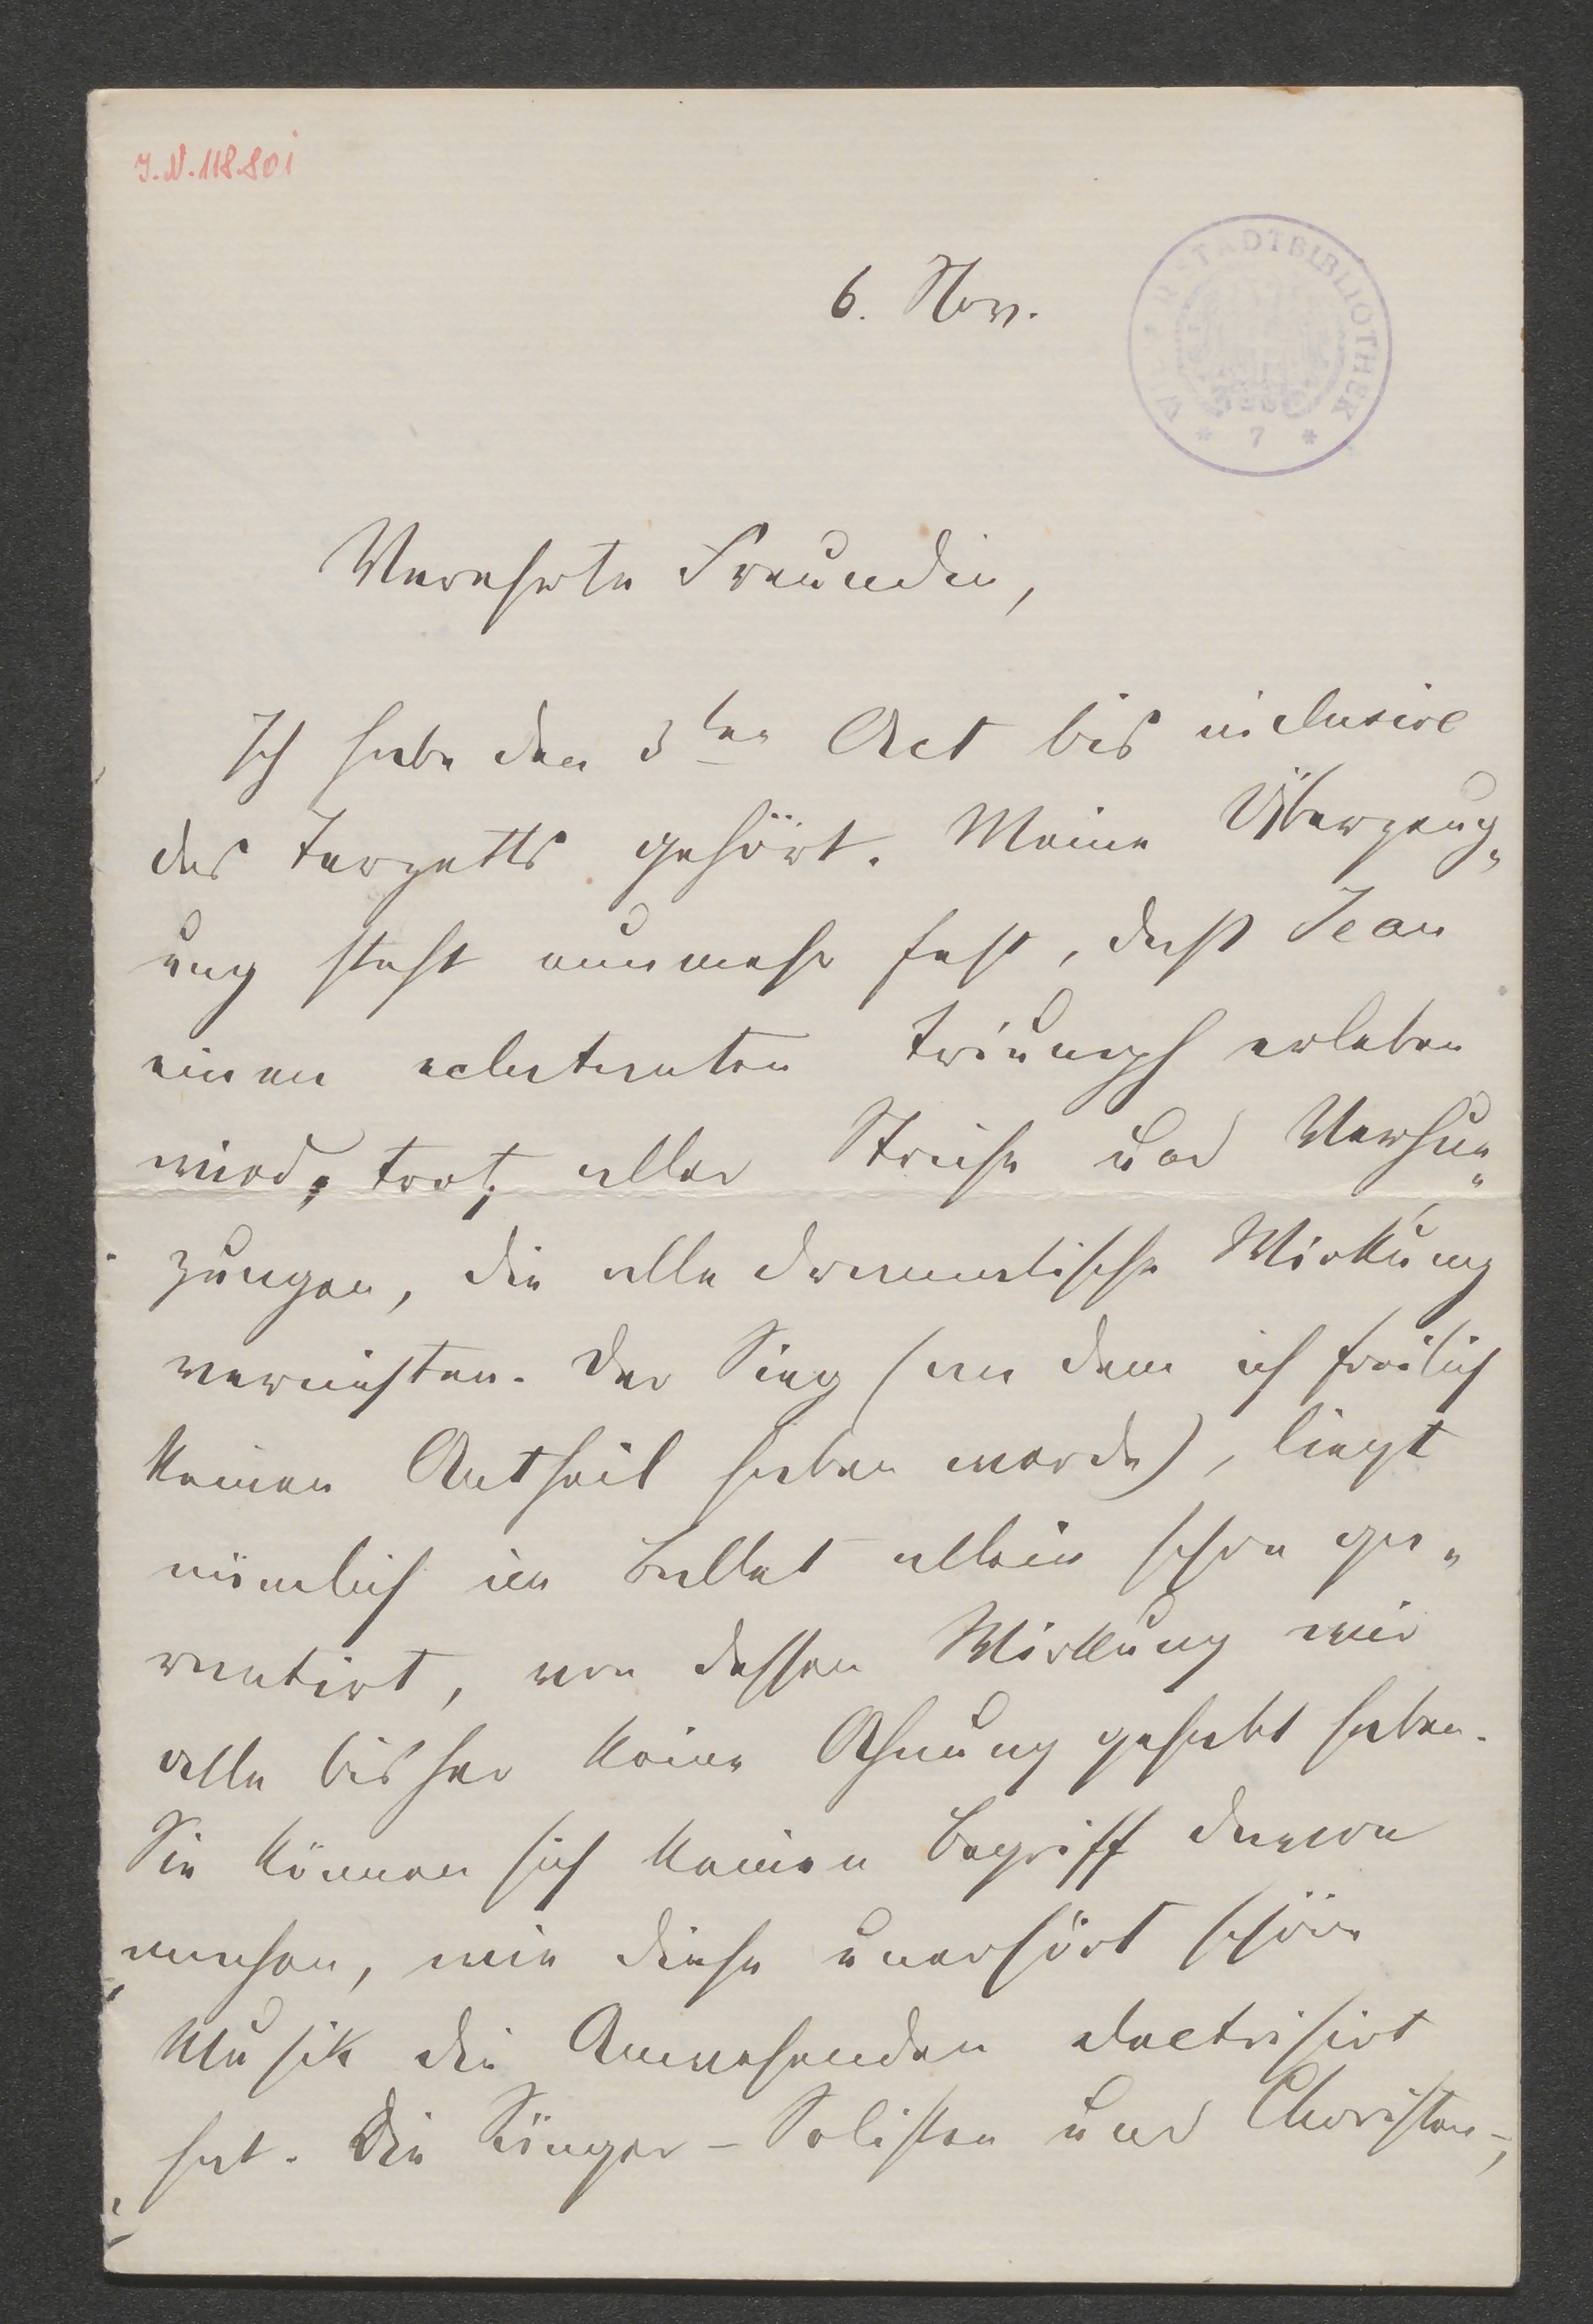 J.N. 118.801
STADTBIBLIOTHEK
* 7 *
6. Nov.
Verehrte Freundin,
Ich habe den 3ten Act bis inclusive
des Terzetts gehört. Meine Überzeug„
ung steht nunmehr fest, daß Jean
einen eclatanten Triumph erleben
wird, trotz aller Striche und Verhun„
zungen, die alle dramatische Wirkung
vernichten. Der Sieg (an dem ich freilich
keinen Antheil haben werde), liegt
nämlich im Ballet allein schon ga„
rantirt, von dessen Wirkung wir
alle bisher keine Ahnung gehabt haben.
Sie können sich keinen Begriff davon
machen, wie diese unerhört schöne
Musik die Anwesenden electrisirt
hat. Die Sänger – Solisten und Choristen –,